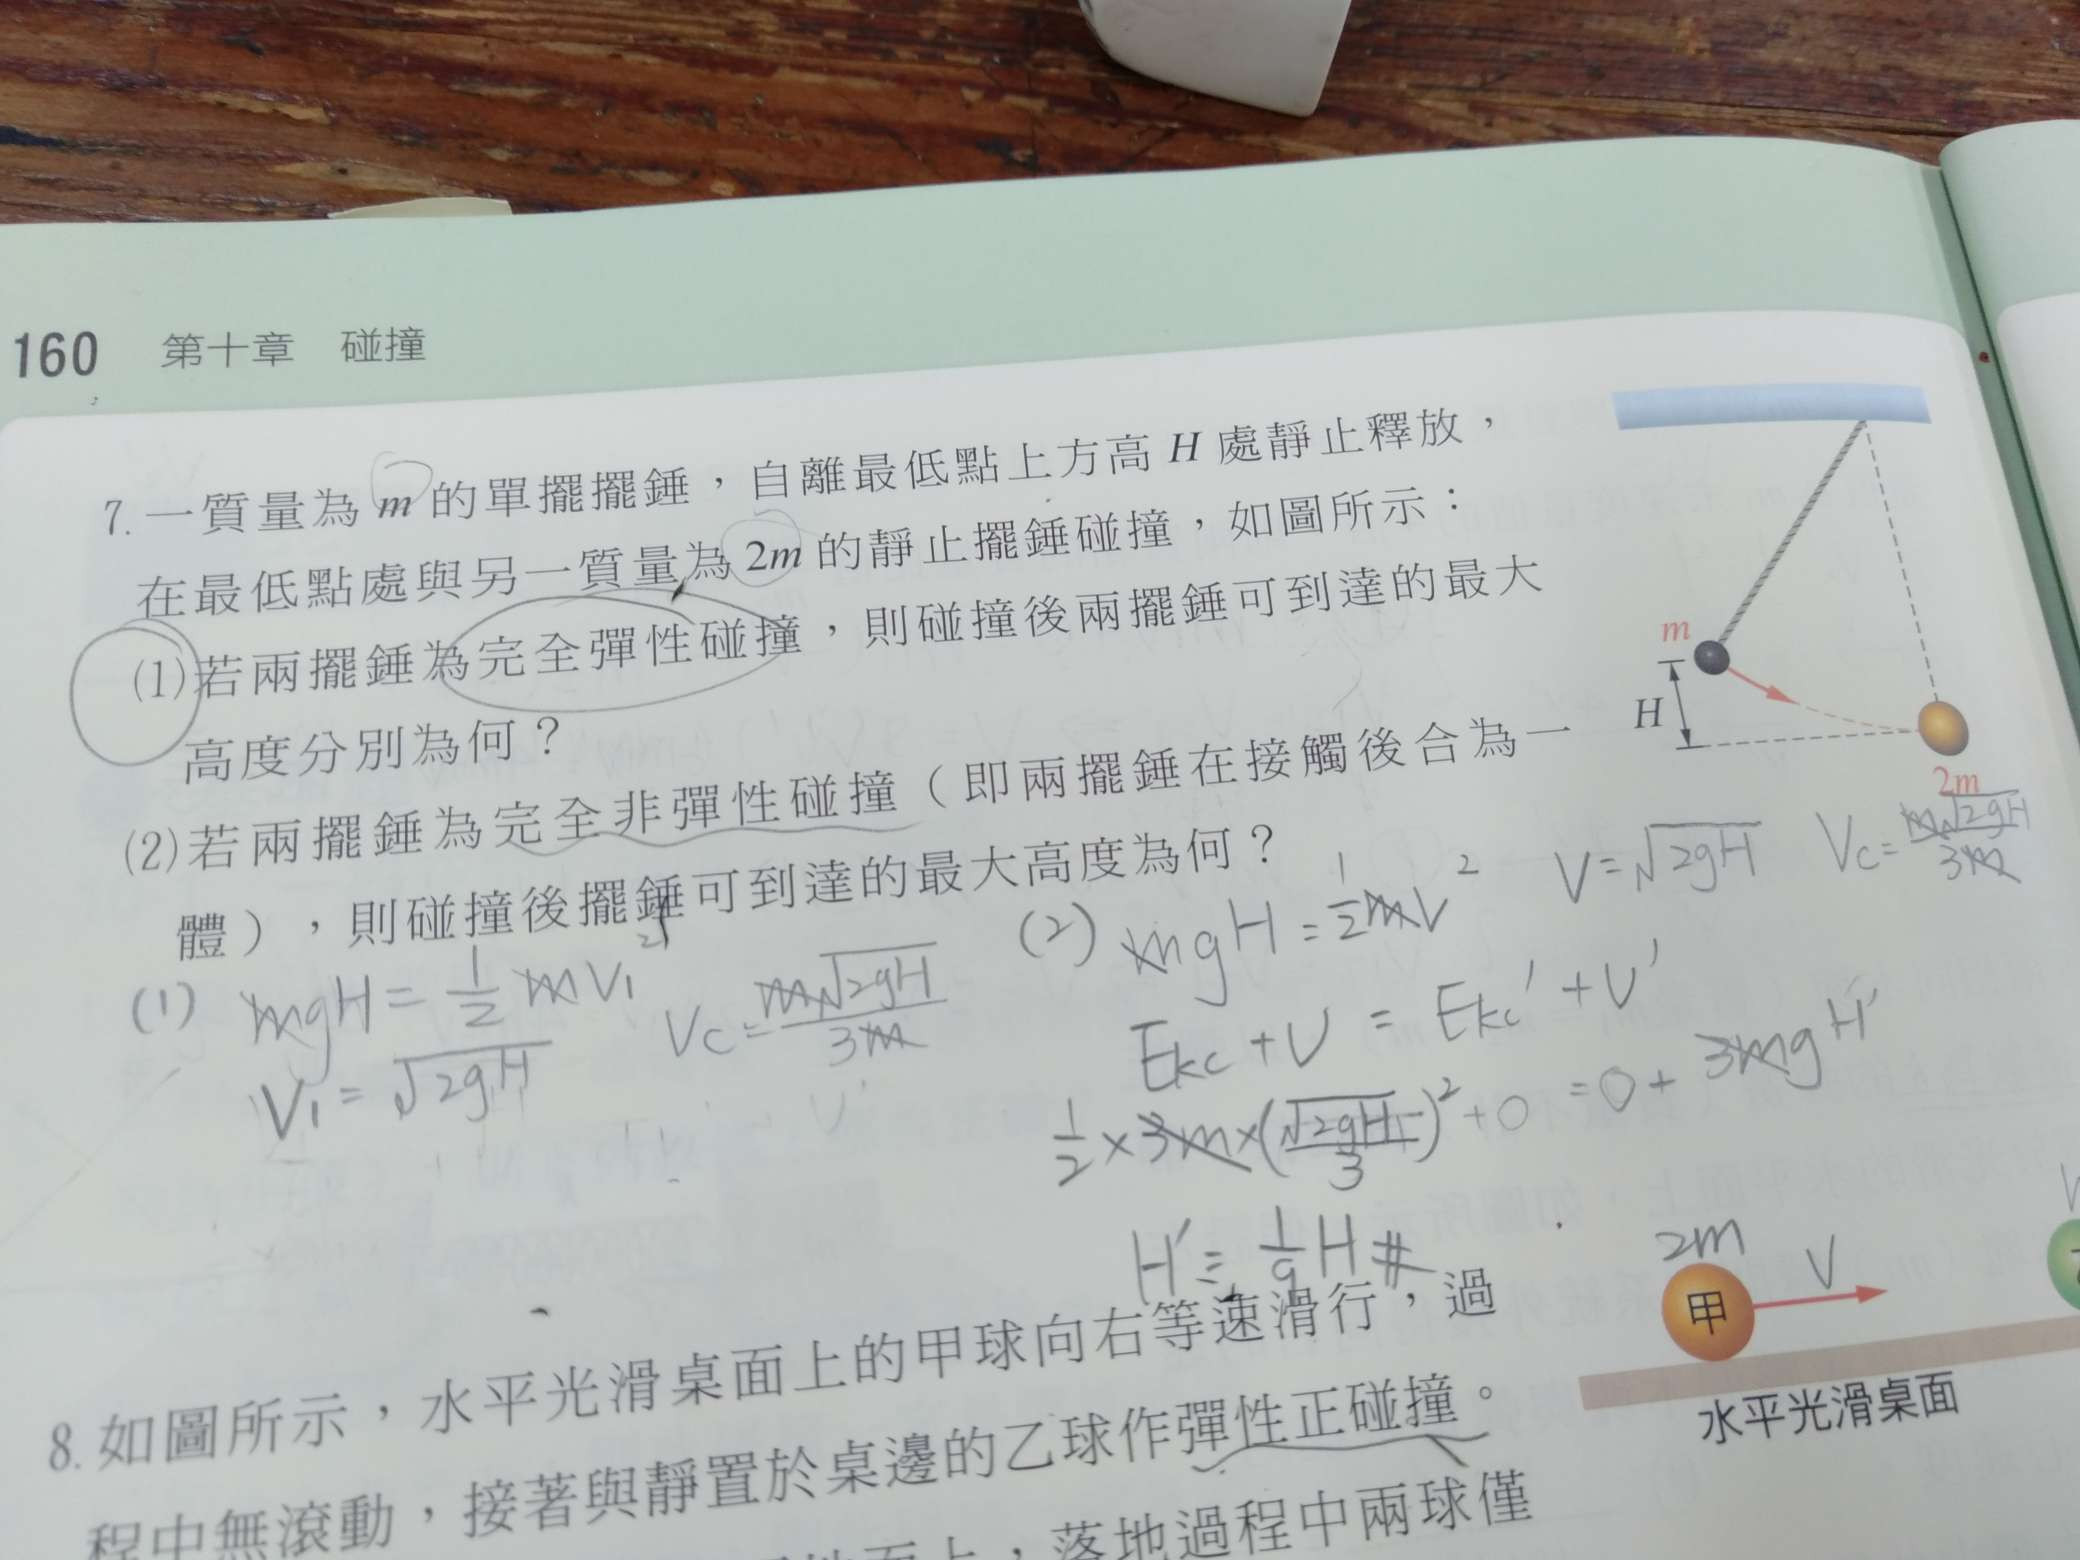 160 第十章 碰撞
7. 一質量為 m 的單擺擺錘，自離最低點上方高 H 處靜止釋放，
在最低點處與另一質量為 2m 的靜止擺錘碰撞，如圖所示：
(1)若兩擺錘為完全彈性碰撞，則碰撞後兩擺錘可到達的最大
高度分別為何？
(2)若兩擺錘為完全非彈性碰撞（即兩擺錘在接觸後合為一
體），則碰撞後擺錘可到達的最大高度為何？
m
H
2m
(1) mgH = 1/2 mV₁²
V₁ = √2gH
Vc = m√2gH / 3m
(2) mgH = 1/2 mV²
V = √2gH
Vc = m√2gH / 3m
Ekc + U = Ekc' + U'
1/2 × 3m × (√2gH / 3)² + 0 = 0 + 3mgH'
H' = 1/9 H #
8. 如圖所示，水平光滑桌面上的甲球向右等速滑行，過
程中無滾動，接著與靜置於桌邊的乙球作彈性正碰撞。
落地過程中兩球僅
2m
V
甲
水平光滑桌面